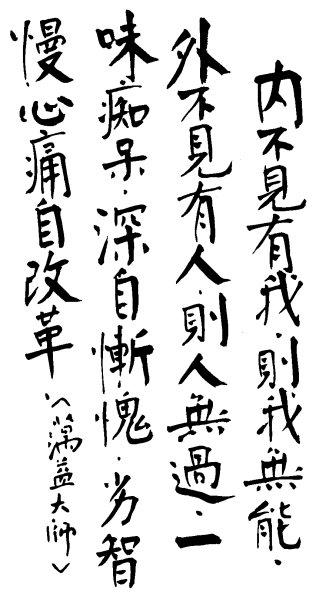 內不見有我．則我無能．
外不見有人．則人無過．一
味痴呆．深自慚愧．劣智
慢心痛自改革．〈蕅益大師〉